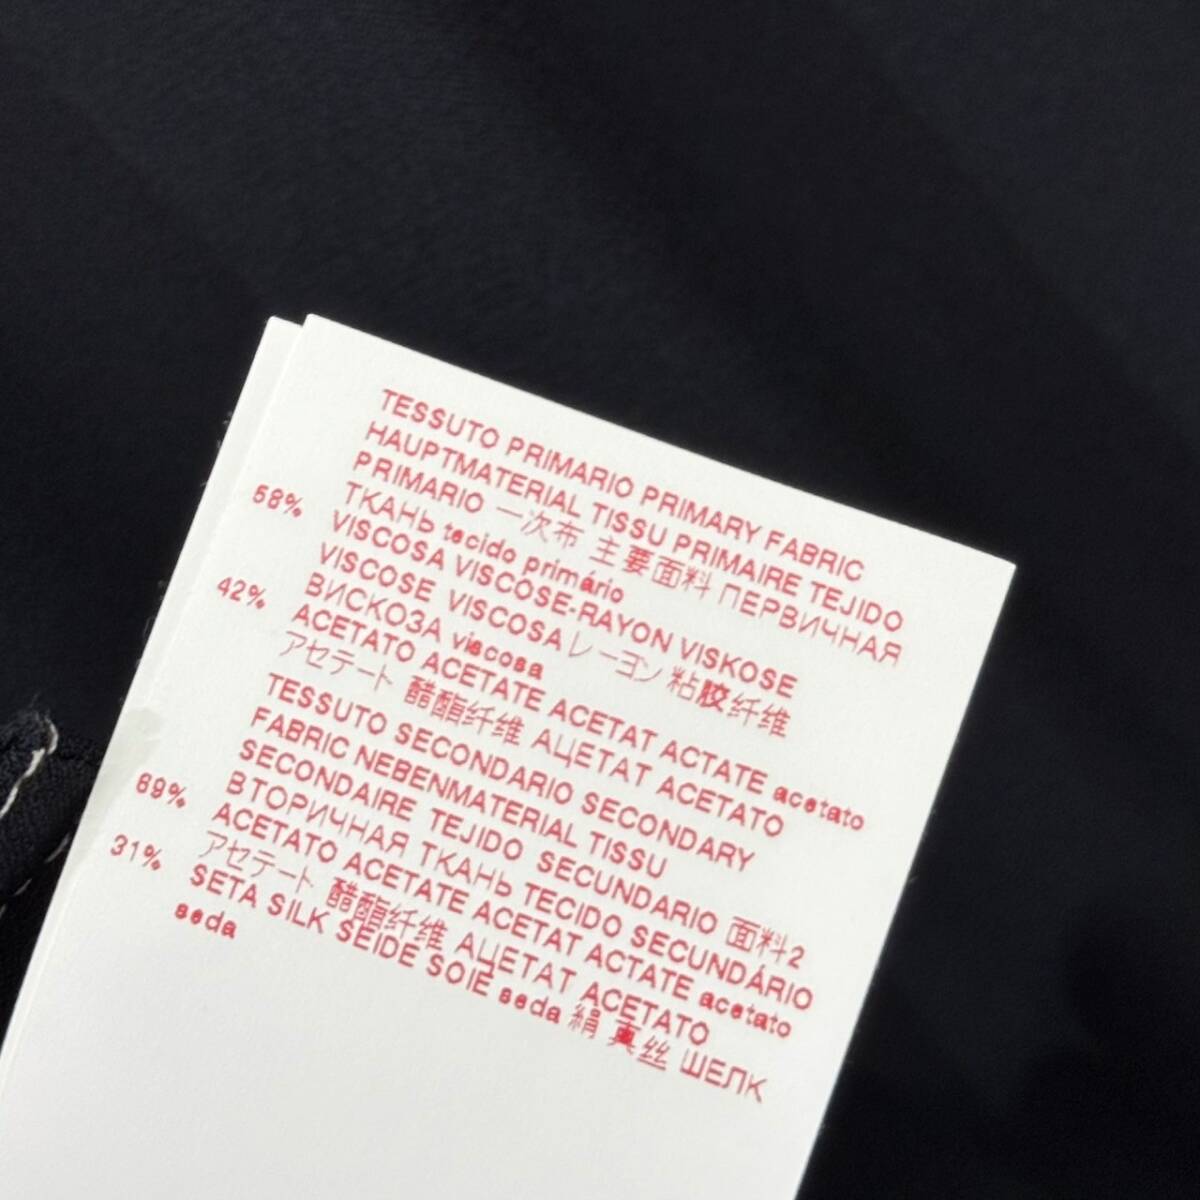 TESSUTO PRIMARIO PRIMARY FABRIC
HAUPTMATERIAL TISSU PRIMAIRE TEJIDO
PRIMARIO 一次布 主要面料 ПЕРВИЧНАЯ
ТКАНЬ tecido primário
58% VISCOSA VISCOSE-RAYON VISKOSE
VISCOSE VISCOSA レーヨン 粘胶纤维
ВИСКОЗА viscosa
42% ACETATO ACETATE ACETAT ACTATE acetato
アセテート 醋酯纤维 АЦЕТАТ ACETATO
TESSUTO SECONDARIO SECONDARY
FABRIC NEBENMATERIAL TISSU
SECONDAIRE TEJIDO SECUNDARIO 面料2
ВТОРИЧНАЯ ТКАНЬ TECIDO SECUNDÁRIO
69% ACETATO ACETATE ACETAT ACTATE acetato
アセテート 醋酯纤维 АЦЕТАТ ACETATO
31% SETA SILK SEIDE SOIE seda 絹 真丝 ШЕЛК
seda